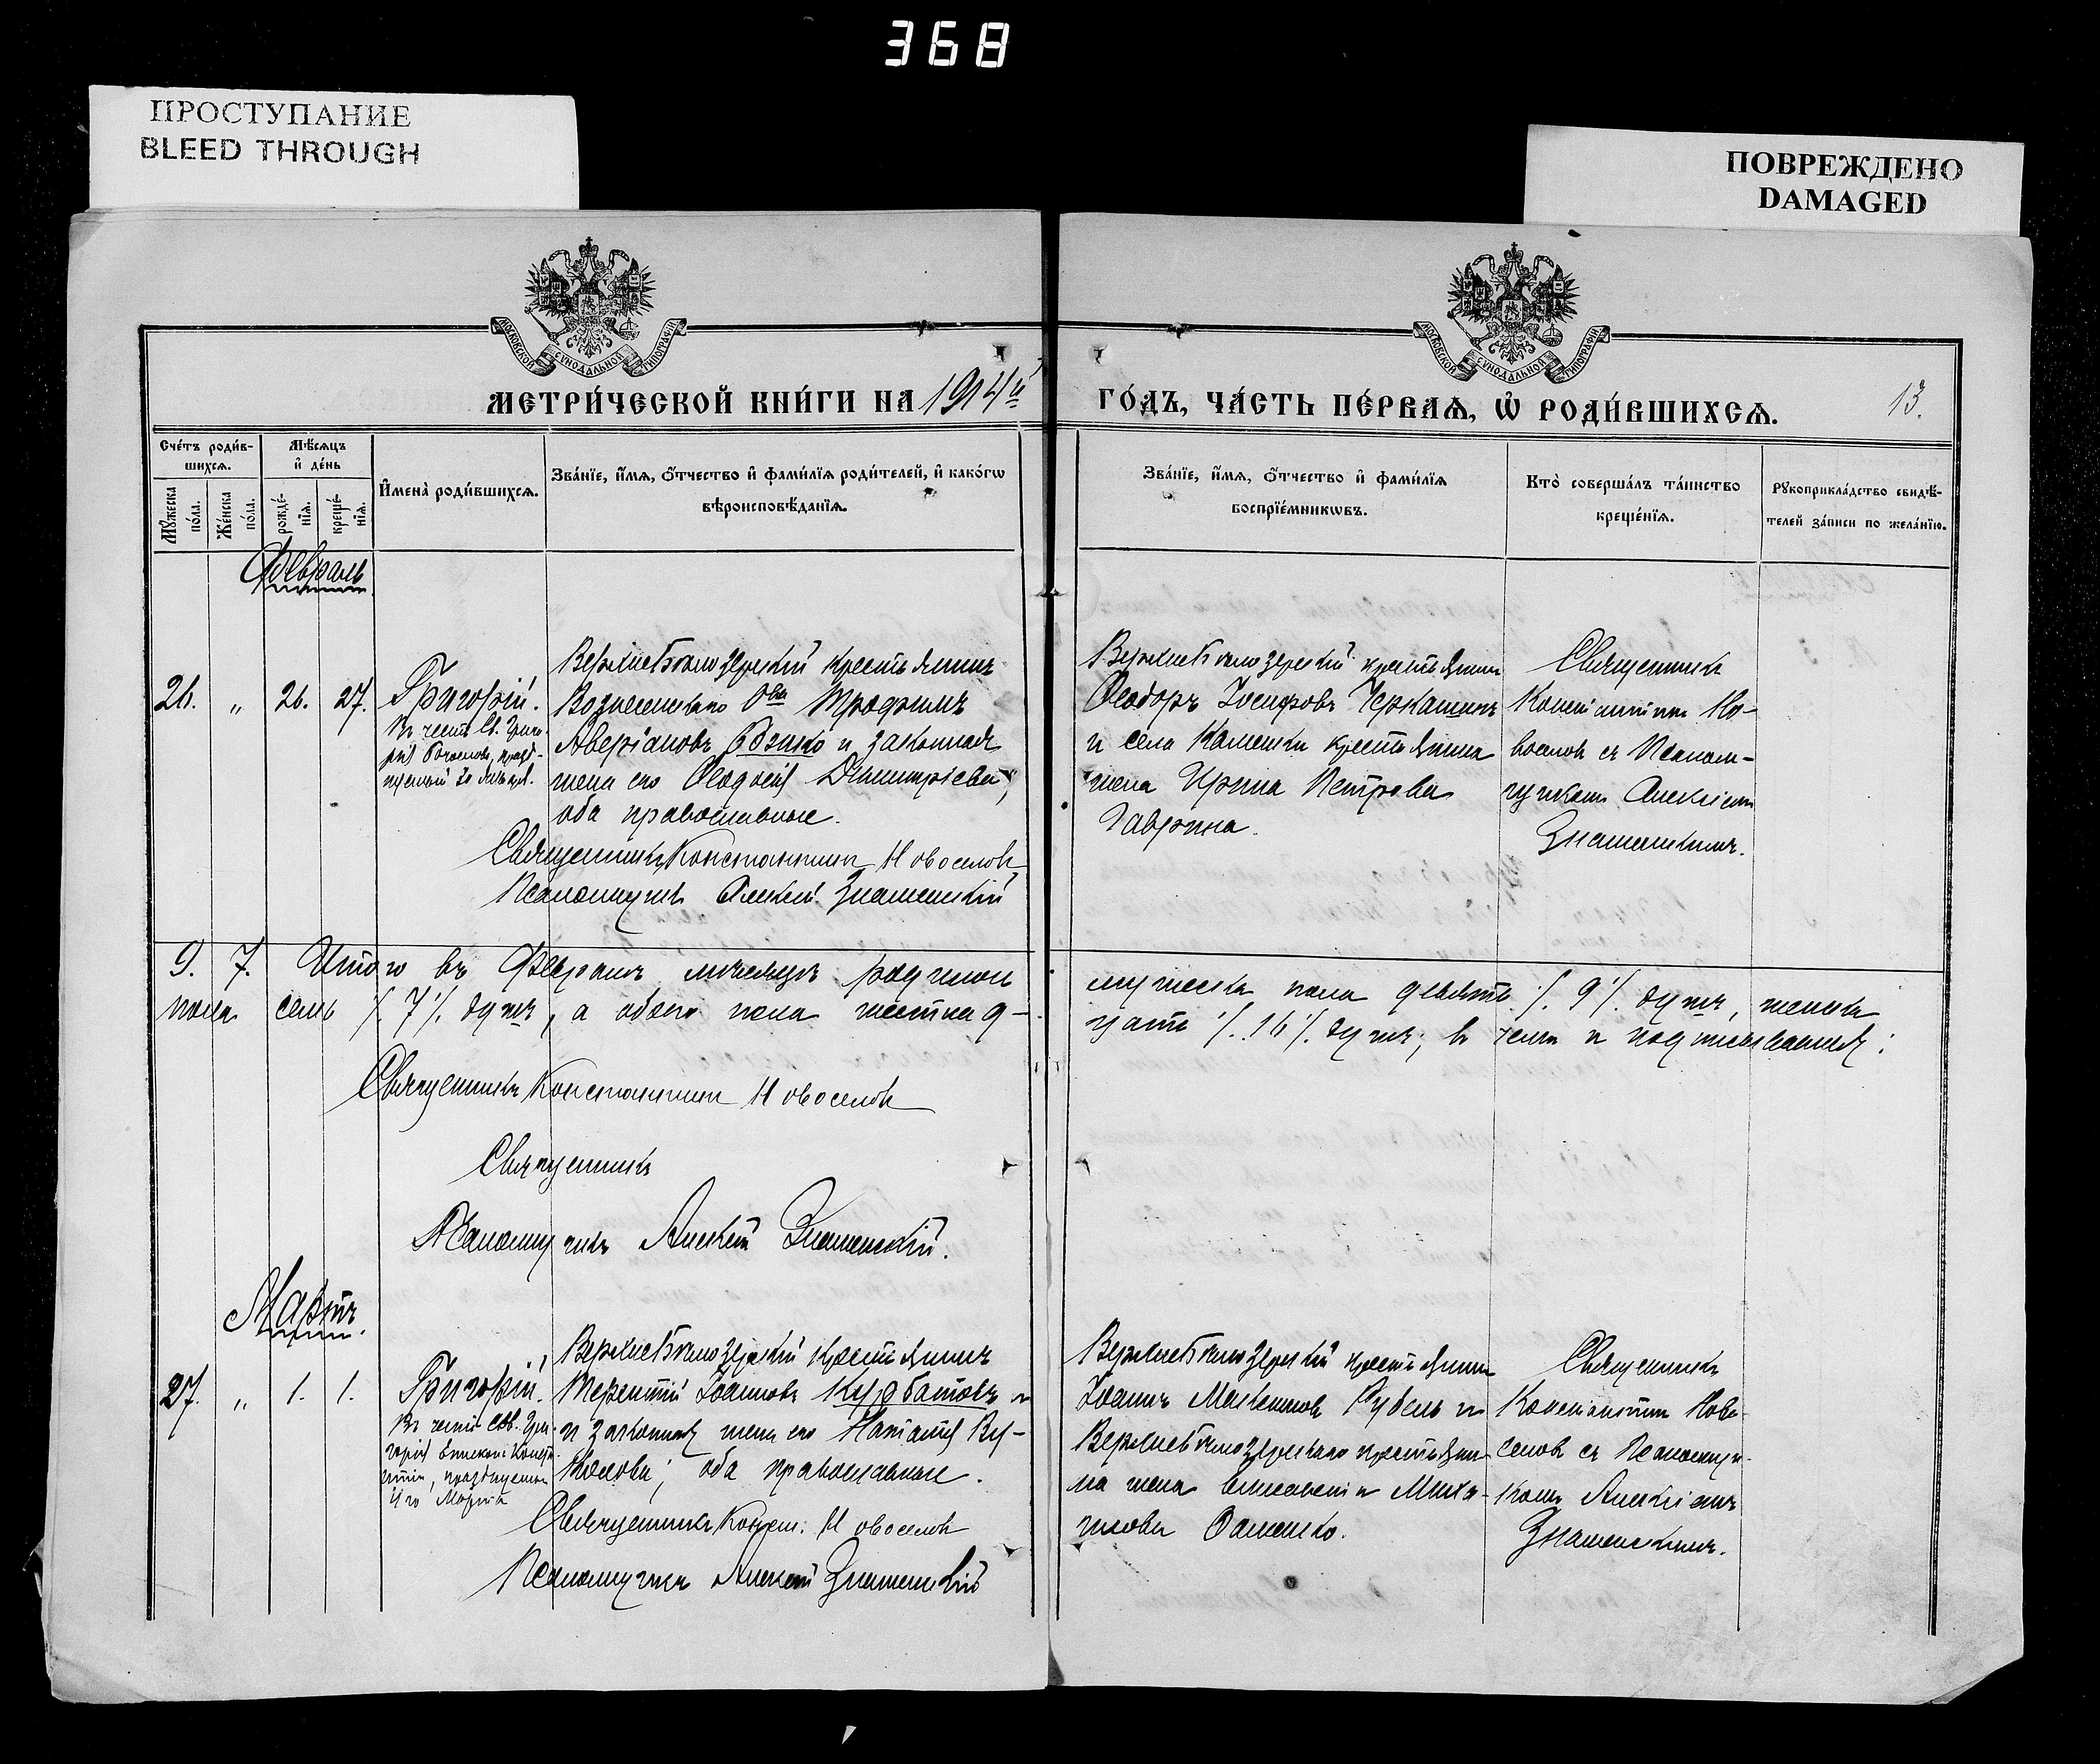 368
ПРОСТУПАНИЕ
BLEED THROUGH
ПОВРЕЖДЕНО
DAMAGED
МОСКОВСКОЙ СѴНОДАЛЬНОЙ ТИПОГРАФІИ
МОСКОВСКОЙ СѴНОДАЛЬНОЙ ТИПОГРАФІИ
МЕТРИ́ЧЕСКОЙ КНИ́ГИ НА 1914й
ГО́ДЪ, ЧА́СТЬ ПЕ́РВАѦ, Ѡ҆ РОДИ́ВШИХСѦ.
13.
Сче́тъ роди́в-
шихсѧ.
Мꙋ́жеска по́ла.
Же́нска по́ла.
Мѣ́сѧцъ
и҆ де́нь
рожде́-
нїѧ.
креще́-
нїѧ.
И҆мена̀ роди́вшихсѧ.
Зва́нїе, и҆́мѧ, ѻ҆́тчество и҆ фами́лїѧ роди́телей, и҆ како́гѡ
вѣроисповѣ́данїѧ.
Зва́нїе, и҆́мѧ, ѻ҆́тчество и҆ фами́лїѧ
воспрїе́мникѡвъ.
Кто̀ соверша́лъ та́инство
креще́нїѧ.
Рꙋкоприкла́дство свидѣ́-
телей за́писи по жела́нїю.
Февраль
26. „ 26. 27. Григорій.
Въ честь Св. Григо-
рія Богослова, празд-
нуемый 30 января.
Верхнебѣлозерскій крестьянинъ
Вознесенскаго Об-ва Трофимъ
Аверіановъ и законная
жена его Ѳеодосія Димитріева,
оба православные.
Священникъ Константинъ Новоселовъ
Псаломщикъ Алексій Знаменскій
Верхнебѣлозерскій крестьянинъ
Ѳеодоръ Іосифовъ Черкашинъ
и села Каменки крестьянина
жена Ирина Петрова
Гаврина.
Священникъ
Константинъ Но-
воселовъ съ Псалом-
щикомъ Алексіемъ
Знаменскимъ.
9. 7. Итого въ Февралѣ мѣсяцѣ родилось
мужеска пола девять /. 9 /. душъ, женска
пола семь /. 7 /. душъ, а обоего пола шестнад-
цать /. 16 /. душъ; въ чемъ и подписываемся:
Священникъ Константинъ Новоселовъ
Священникъ
Псаломщикъ Алексій Знаменскій.
Мартъ.
27. „ 1. 1. Григорій.
Въ честь Св. Гри-
горія Епископа
празднуемый
4го Марта
Верхнебѣлозерскій крестьянинъ
Терентій Іоанновъ Курбатовъ и
и законная жена его Наталія Ву-
колова; оба православные.
Священникъ Конст. Новоселовъ
Псаломщикъ Алексій Знаменскій
Верхнебѣлозерскій крестьянинъ
Іоаннъ Рубель и
Верхнебѣлозерскаго крестьяни-
на жена Елисавета Миха-
илова
Священникъ
Константинъ Ново-
селовъ съ Псаломщи-
комъ Алексіемъ
Знаменскимъ.